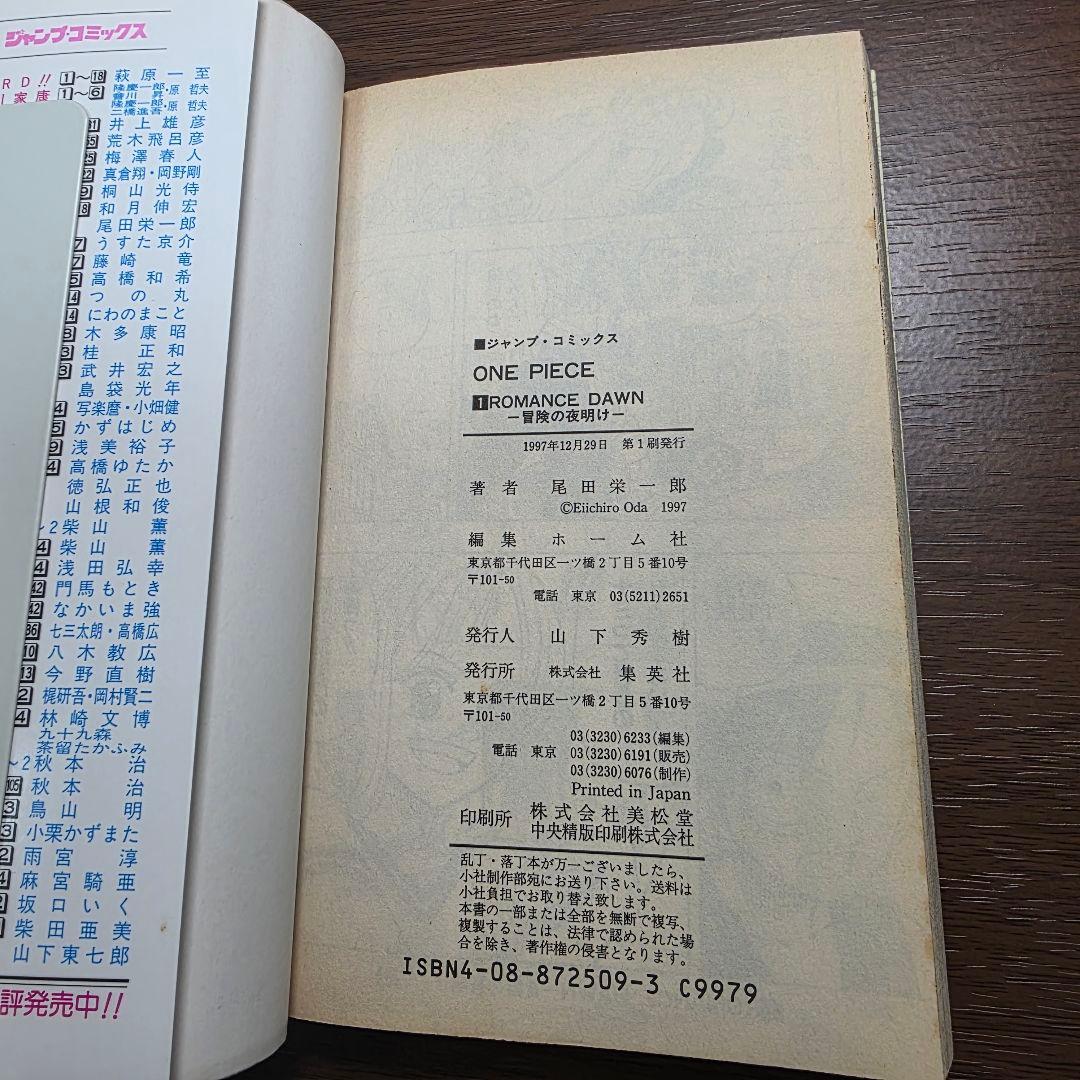 ジャンプ・コミックス
RD!! 1〜18 萩原一至
家康 1〜6 隆慶一郎・原哲夫
會川昇
隆慶一郎・原哲夫
二橋進吾
井上雄彦
荒木飛呂彦
25 梅澤春人
真倉翔・岡野剛
9 桐山光侍
8 和月伸宏
尾田栄一郎
7 うすた京介
7 藤崎竜
5 高橋和希
4 つの丸
4 にわのまこと
木多康昭
3 桂正和
3 武井宏之
島袋光年
4 写楽麿・小畑健
5 かずはじめ
9 浅美裕子
4 高橋ゆたか
徳弘正也
山根和俊
〜2 柴山薫
4 柴山薫
4 浅田弘幸
42 門馬もとき
42 なかいま強
36 七三太朗・高橋広
10 八木教広
13 今野直樹
2 梶研吾・岡村賢二
4 林崎文博
九十九森
茶留たかふみ
〜2 秋本治
105 秋本治
3 鳥山明
3 小栗かずまた
2 雨宮淳
4 麻宮騎亜
2 坂口いく
柴田亜美
山下東七郎
評発売中!!
■ジャンプ・コミックス
ONE PIECE
1 ROMANCE DAWN
―冒険の夜明け―
1997年12月29日 第1刷発行
著者 尾田栄一郎
©Eiichiro Oda 1997
編集 ホーム社
東京都千代田区一ツ橋2丁目5番10号
〒101-50
電話 東京 03(5211)2651
発行人 山下秀樹
発行所 株式会社 集英社
東京都千代田区一ツ橋2丁目5番10号
〒101-50
03(3230)6233(編集)
電話 東京 03(3230)6191(販売)
03(3230)6076(制作)
Printed in Japan
印刷所 株式会社美松堂
中央精版印刷株式会社
乱丁・落丁本が万一ございましたら、
小社制作部宛にお送り下さい。送料は
小社負担でお取り替え致します。
本書の一部または全部を無断で複写、
複製することは、法律で認められた場
合を除き、著作権の侵害となります。
ISBN4-08-872509-3 C9979